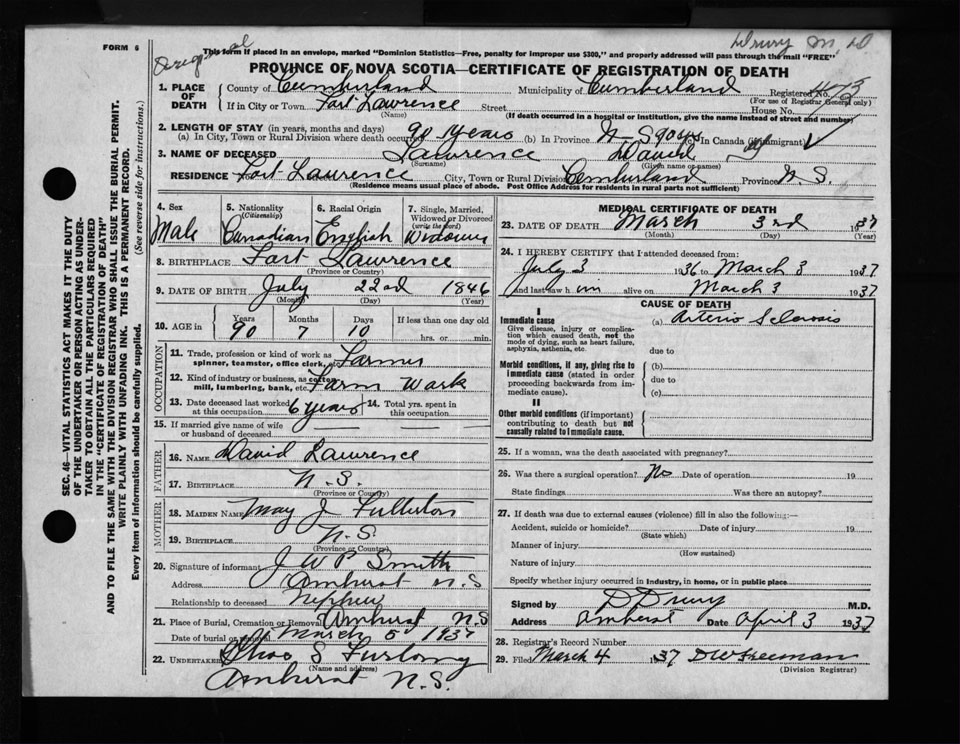 FORM 6
Original
Drury M.D.
This form if placed in an envelope, marked "Dominion Statistics—Free, penalty for improper use $300," and properly addressed will pass through the mail "FREE"
PROVINCE OF NOVA SCOTIA—CERTIFICATE OF REGISTRATION OF DEATH
1. PLACE OF DEATH
County of Cumberland Municipality of Cumberland Registered No.
(For use of Registrar General only)
If in City or Town Fort Lawrence Street House No.
(Name) (If death occurred in a hospital or institution, give the name instead of street and number)
2. LENGTH OF STAY (in years, months and days)
(a) In City, Town or Rural Division where death occurred 90 years (b) In Province N-S 90 yrs (c) In Canada (if immigrant)
3. NAME OF DECEASED Lawrence David
(Surname) (Given name or names)
RESIDENCE Fort Lawrence City, Town or Rural Division Cumberland Province N.S.
(Residence means usual place of abode. Post Office Address for residents in rural parts not sufficient)
SEC. 46—VITAL STATISTICS ACT MAKES IT THE DUTY
OF THE UNDERTAKER OR PERSON ACTING AS UNDER-
TAKER TO OBTAIN ALL THE PARTICULARS REQUIRED
IN THE "CERTIFICATE OF REGISTRATION OF DEATH"
AND TO FILE THE SAME WITH THE DIVISION REGISTRAR WHO SHALL ISSUE THE BURIAL PERMIT.
WRITE PLAINLY WITH UNFADING INK. THIS IS A PERMANENT RECORD.
Every item of information should be carefully supplied. (See reverse side for instructions.)
4. Sex 5. Nationality (Citizenship) 6. Racial Origin 7. Single, Married, Widowed or Divorced (write the word)
Male Canadian English Widower
8. BIRTHPLACE Fort Lawrence
(Province or Country)
9. DATE OF BIRTH July 22nd 1846
(Month) (Day) (Year)
10. AGE in Years Months Days If less than one day old
90 7 10 hrs. or min.
OCCUPATION
11. Trade, profession or kind of work as spinner, teamster, office clerk, Farmer
12. Kind of industry or business, as cotton mill, lumbering, bank, etc. Farm Work
13. Date deceased last worked at this occupation 6 years 14. Total yrs. spent in this occupation
15. If married give name of wife or husband of deceased
FATHER
16. NAME David Lawrence
17. BIRTHPLACE N.S.
(Province or Country)
MOTHER
18. MAIDEN NAME May J Fullerton
19. BIRTHPLACE N.S.
(Province or Country)
20. Signature of informant J W P Smith
Address Amherst N.S
Relationship to deceased Nephew
21. Place of Burial, Cremation or Removal Amherst N.S
Date of burial March 5 1937
22. UNDERTAKER Thos S Furlong
(Name and address)
Amherst N.S.
MEDICAL CERTIFICATE OF DEATH
23. DATE OF DEATH March 3rd 1937
(Month) (Day) (Year)
24. I HEREBY CERTIFY that I attended deceased from:
July 3 1936 to March 3 1937
and last saw him alive on March 3 1937
CAUSE OF DEATH
I
Immediate cause (a) Arterio Sclerosis
Give disease, injury or complication which caused death, not the mode of dying, such as heart failure, asphyxia, asthenia, etc.
due to
Morbid conditions, if any, giving rise to immediate cause (stated in order proceeding backwards from immediate cause).
(b)
due to
(c)
II
Other morbid conditions (if important) contributing to death but not causally related to immediate cause.
25. If a woman, was the death associated with pregnancy?
26. Was there a surgical operation? No Date of operation 19
State findings Was there an autopsy?
27. If death was due to external causes (violence) fill in also the following:—
Accident, suicide or homicide? Date of injury 19
(State which)
Manner of injury
(How sustained)
Nature of injury
Specify whether injury occurred in industry, in home, or in public place
Signed by D Drury M.D.
Address Amherst Date April 3 1937
28. Registrar's Record Number
29. Filed March 4 1937 D W Freeman
(Division Registrar)